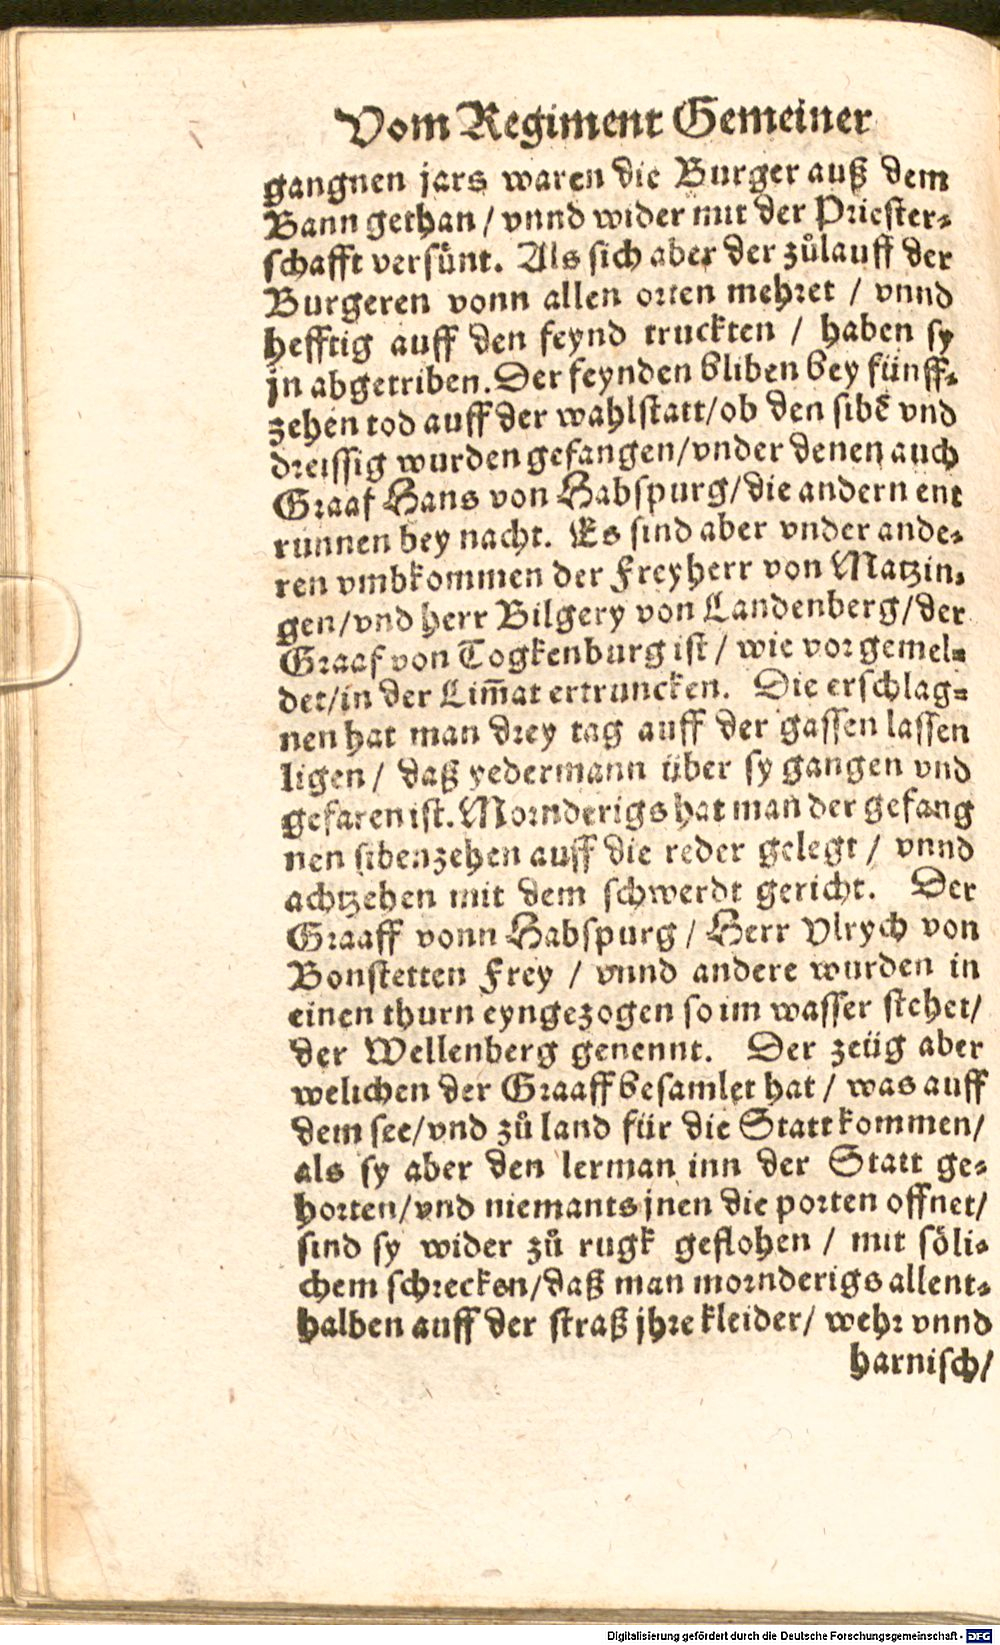 Vom Regiment Gemeiner
gangnen jars waren die Burger auß dem
Bann gethan / vnnd wider mit der Priester-
schafft versünt. Als sich aber der zůlauff der
Burgeren vonn allen orten mehret / vnnd
hefftig auff den feynd truckten / haben sy
jn abgetriben. Der feynden bliben bey fünff-
zehen tod auff der wahlstatt/ob den sibē vnd
dreissig wurden gefangen/vnder denen auch
Graaf Hans von Habspurg/die andern ent
runnen bey nacht. Es sind aber vnder ande-
ren vmbkommen der Freyherr von Matzin-
gen/vnd herr Bilgery von Landenberg/der
Graaf von Togkenburg ist / wie vor gemel-
det/in der Lim̄at ertruncken. Die erschlag-
nen hat man drey tag auff der gassen lassen
ligen / daß yedermann über sy gangen vnd
gefaren ist. Mornderigs hat man der gefang
nen sibenzehen auff die reder gelegt / vnnd
achtzehen mit dem schwerdt gericht. Der
Graaff vonn Habspurg / Herr Vlrych von
Bonstetten Frey / vnnd andere wurden in
einen thurn eyngezogen so im wasser stehet/
der Wellenberg genennt. Der zeüg aber
welichen der Graaff besamlet hat / was auff
dem see/vnd zů land für die Statt kommen/
als sy aber den lerman inn der Statt ge-
horten/vnd niemants jnen die porten offnet/
sind sy wider zů rugk geflohen / mit söli-
chem schrecken/daß man mornderigs allent-
halben auff der straß jhre kleider/ wehr vnnd
harnisch/
Digitalisierung gefördert durch die Deutsche Forschungsgemeinschaft - DFG